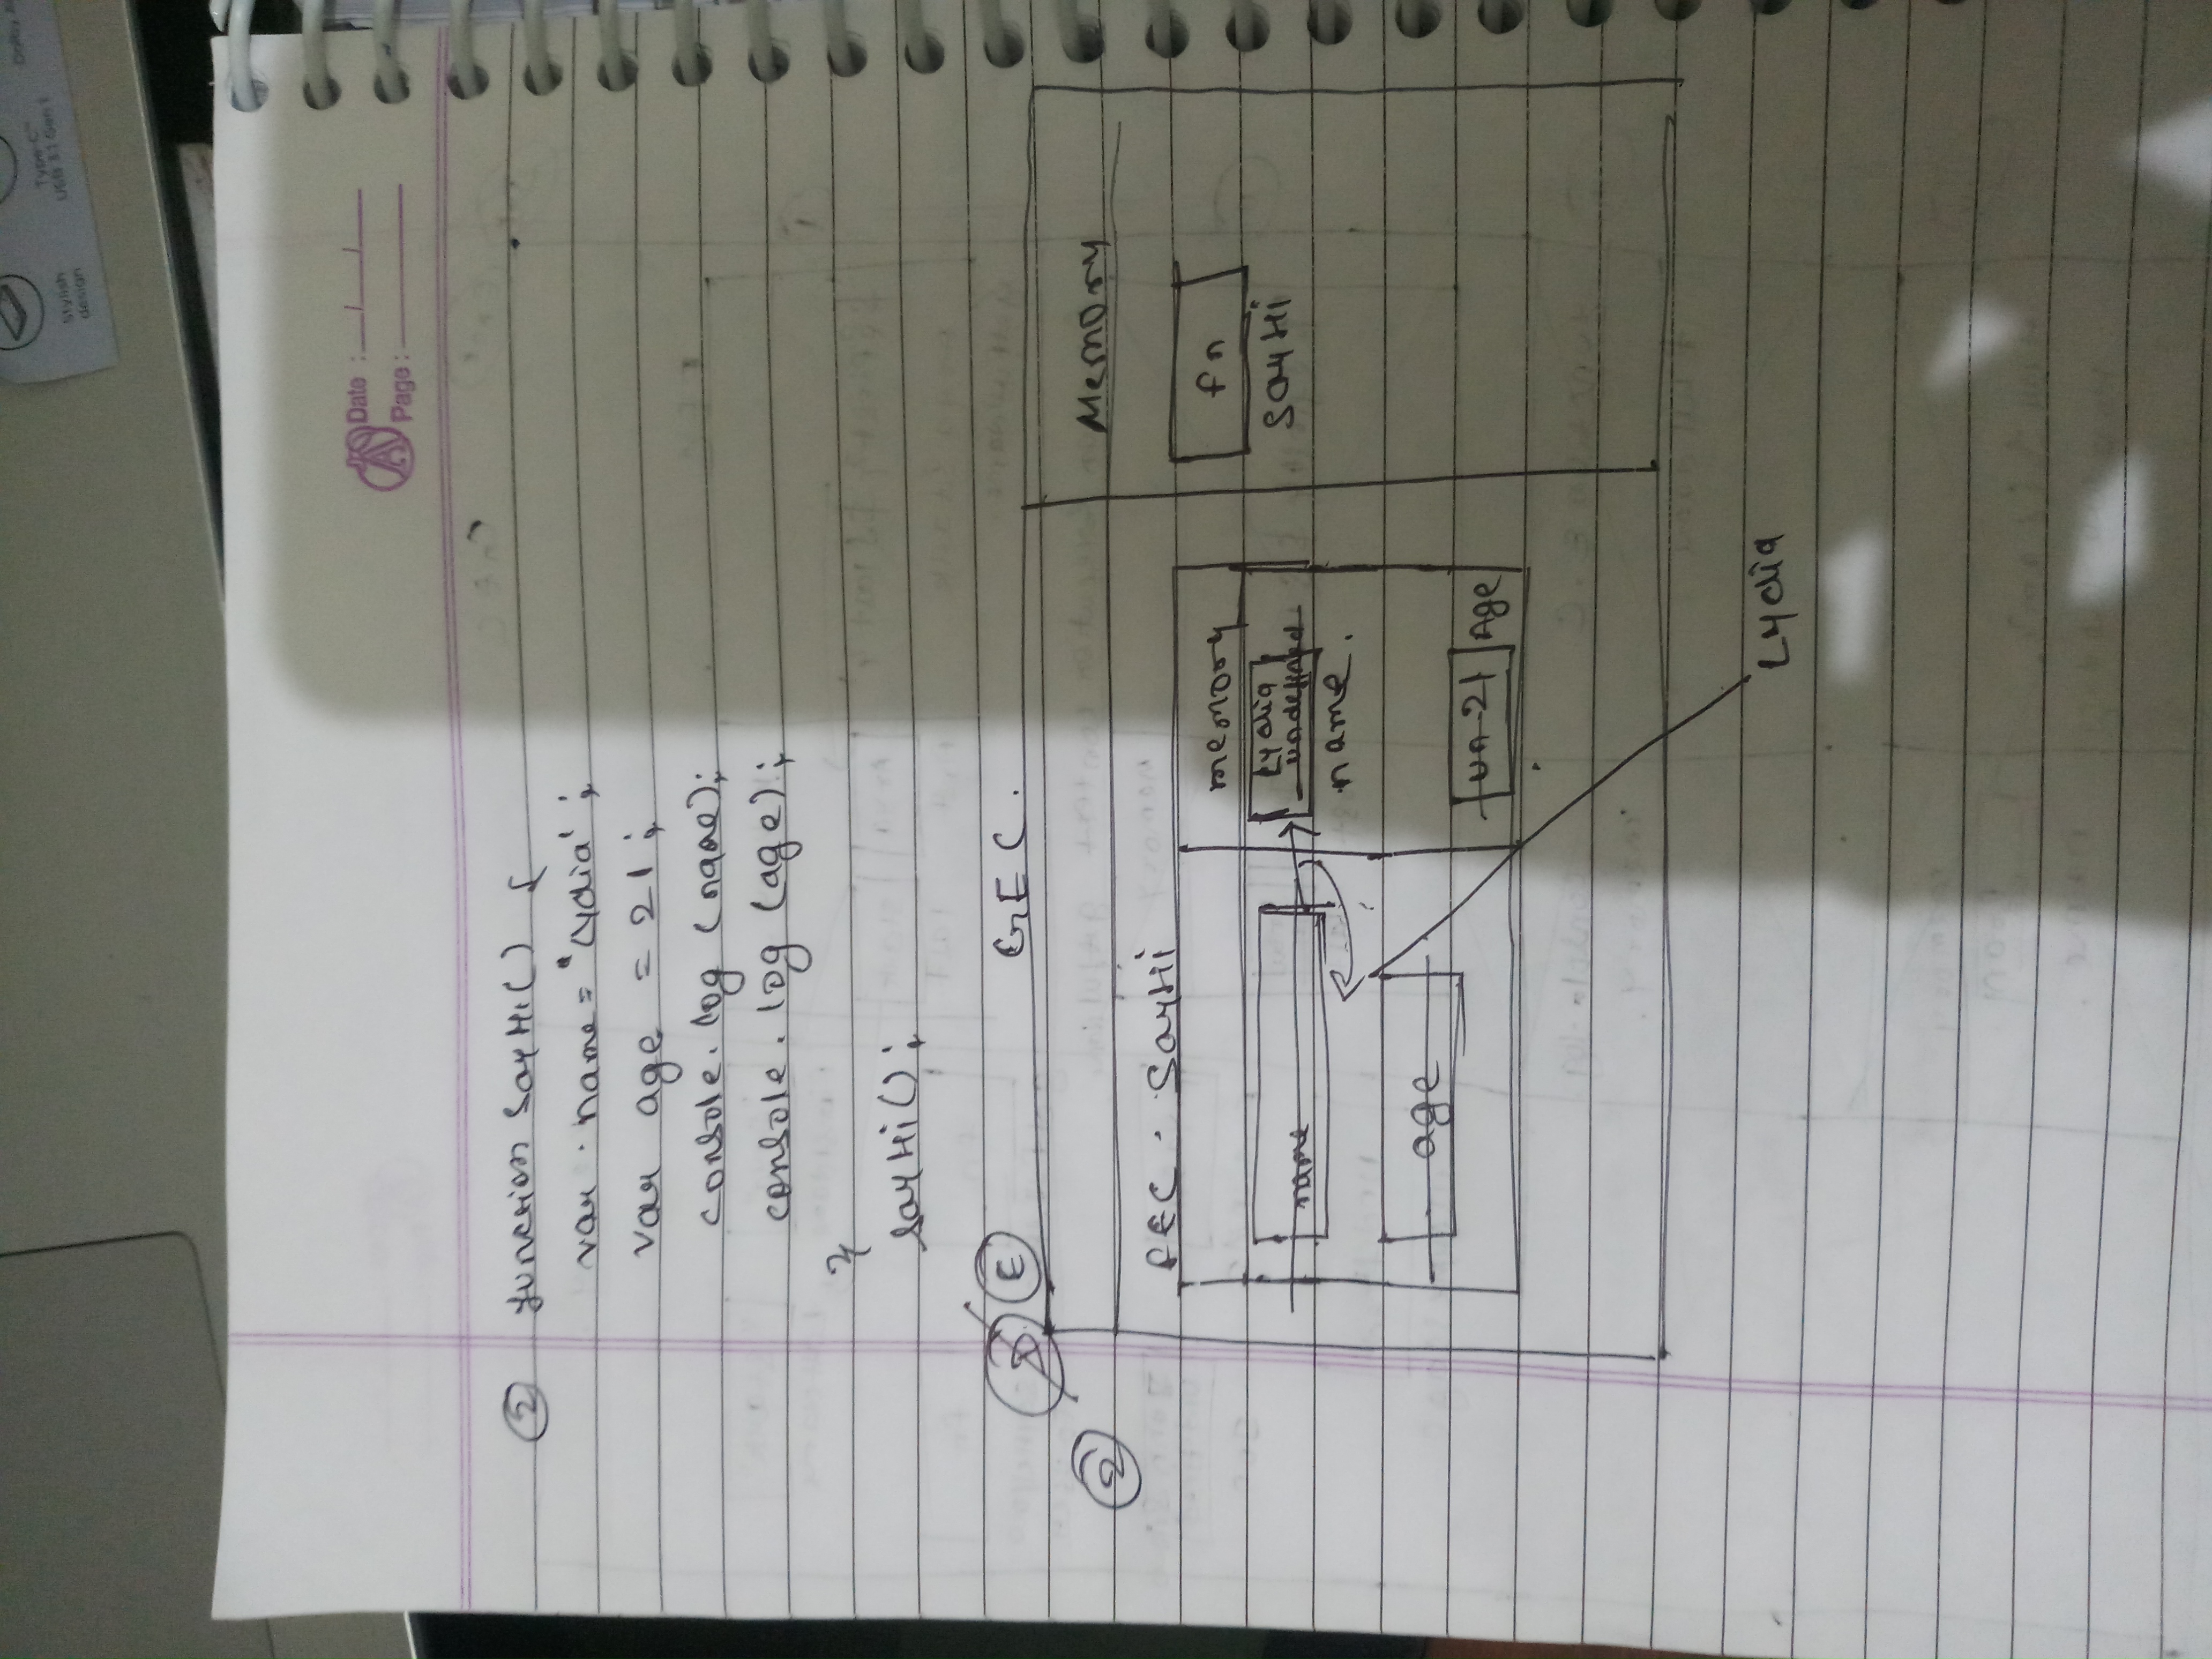 Stylish
design
Type-C™
USB 3.1 Gen 1
Date :
Page :
② function sayHi() {
var . name = "Lydia' ;
var age = 21 ;
console. log (name);
console. log (age);
}
sayHi();
D E GEC.
② Memory
FEC . SayHi
memory
fn
SayHi
name
Lydia
undefined
name.
age
un 21 Age
Lydia